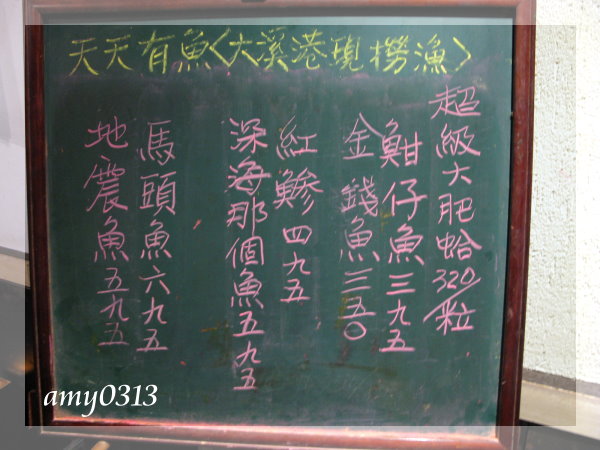 天天有魚<大溪港現撈漁>
超級大肥蛤320/粒
魽仔魚三九五
金錢魚三五〇
紅鰺四九五
深海那個魚五九五
馬頭魚六九五
地震魚五九五
amy0313